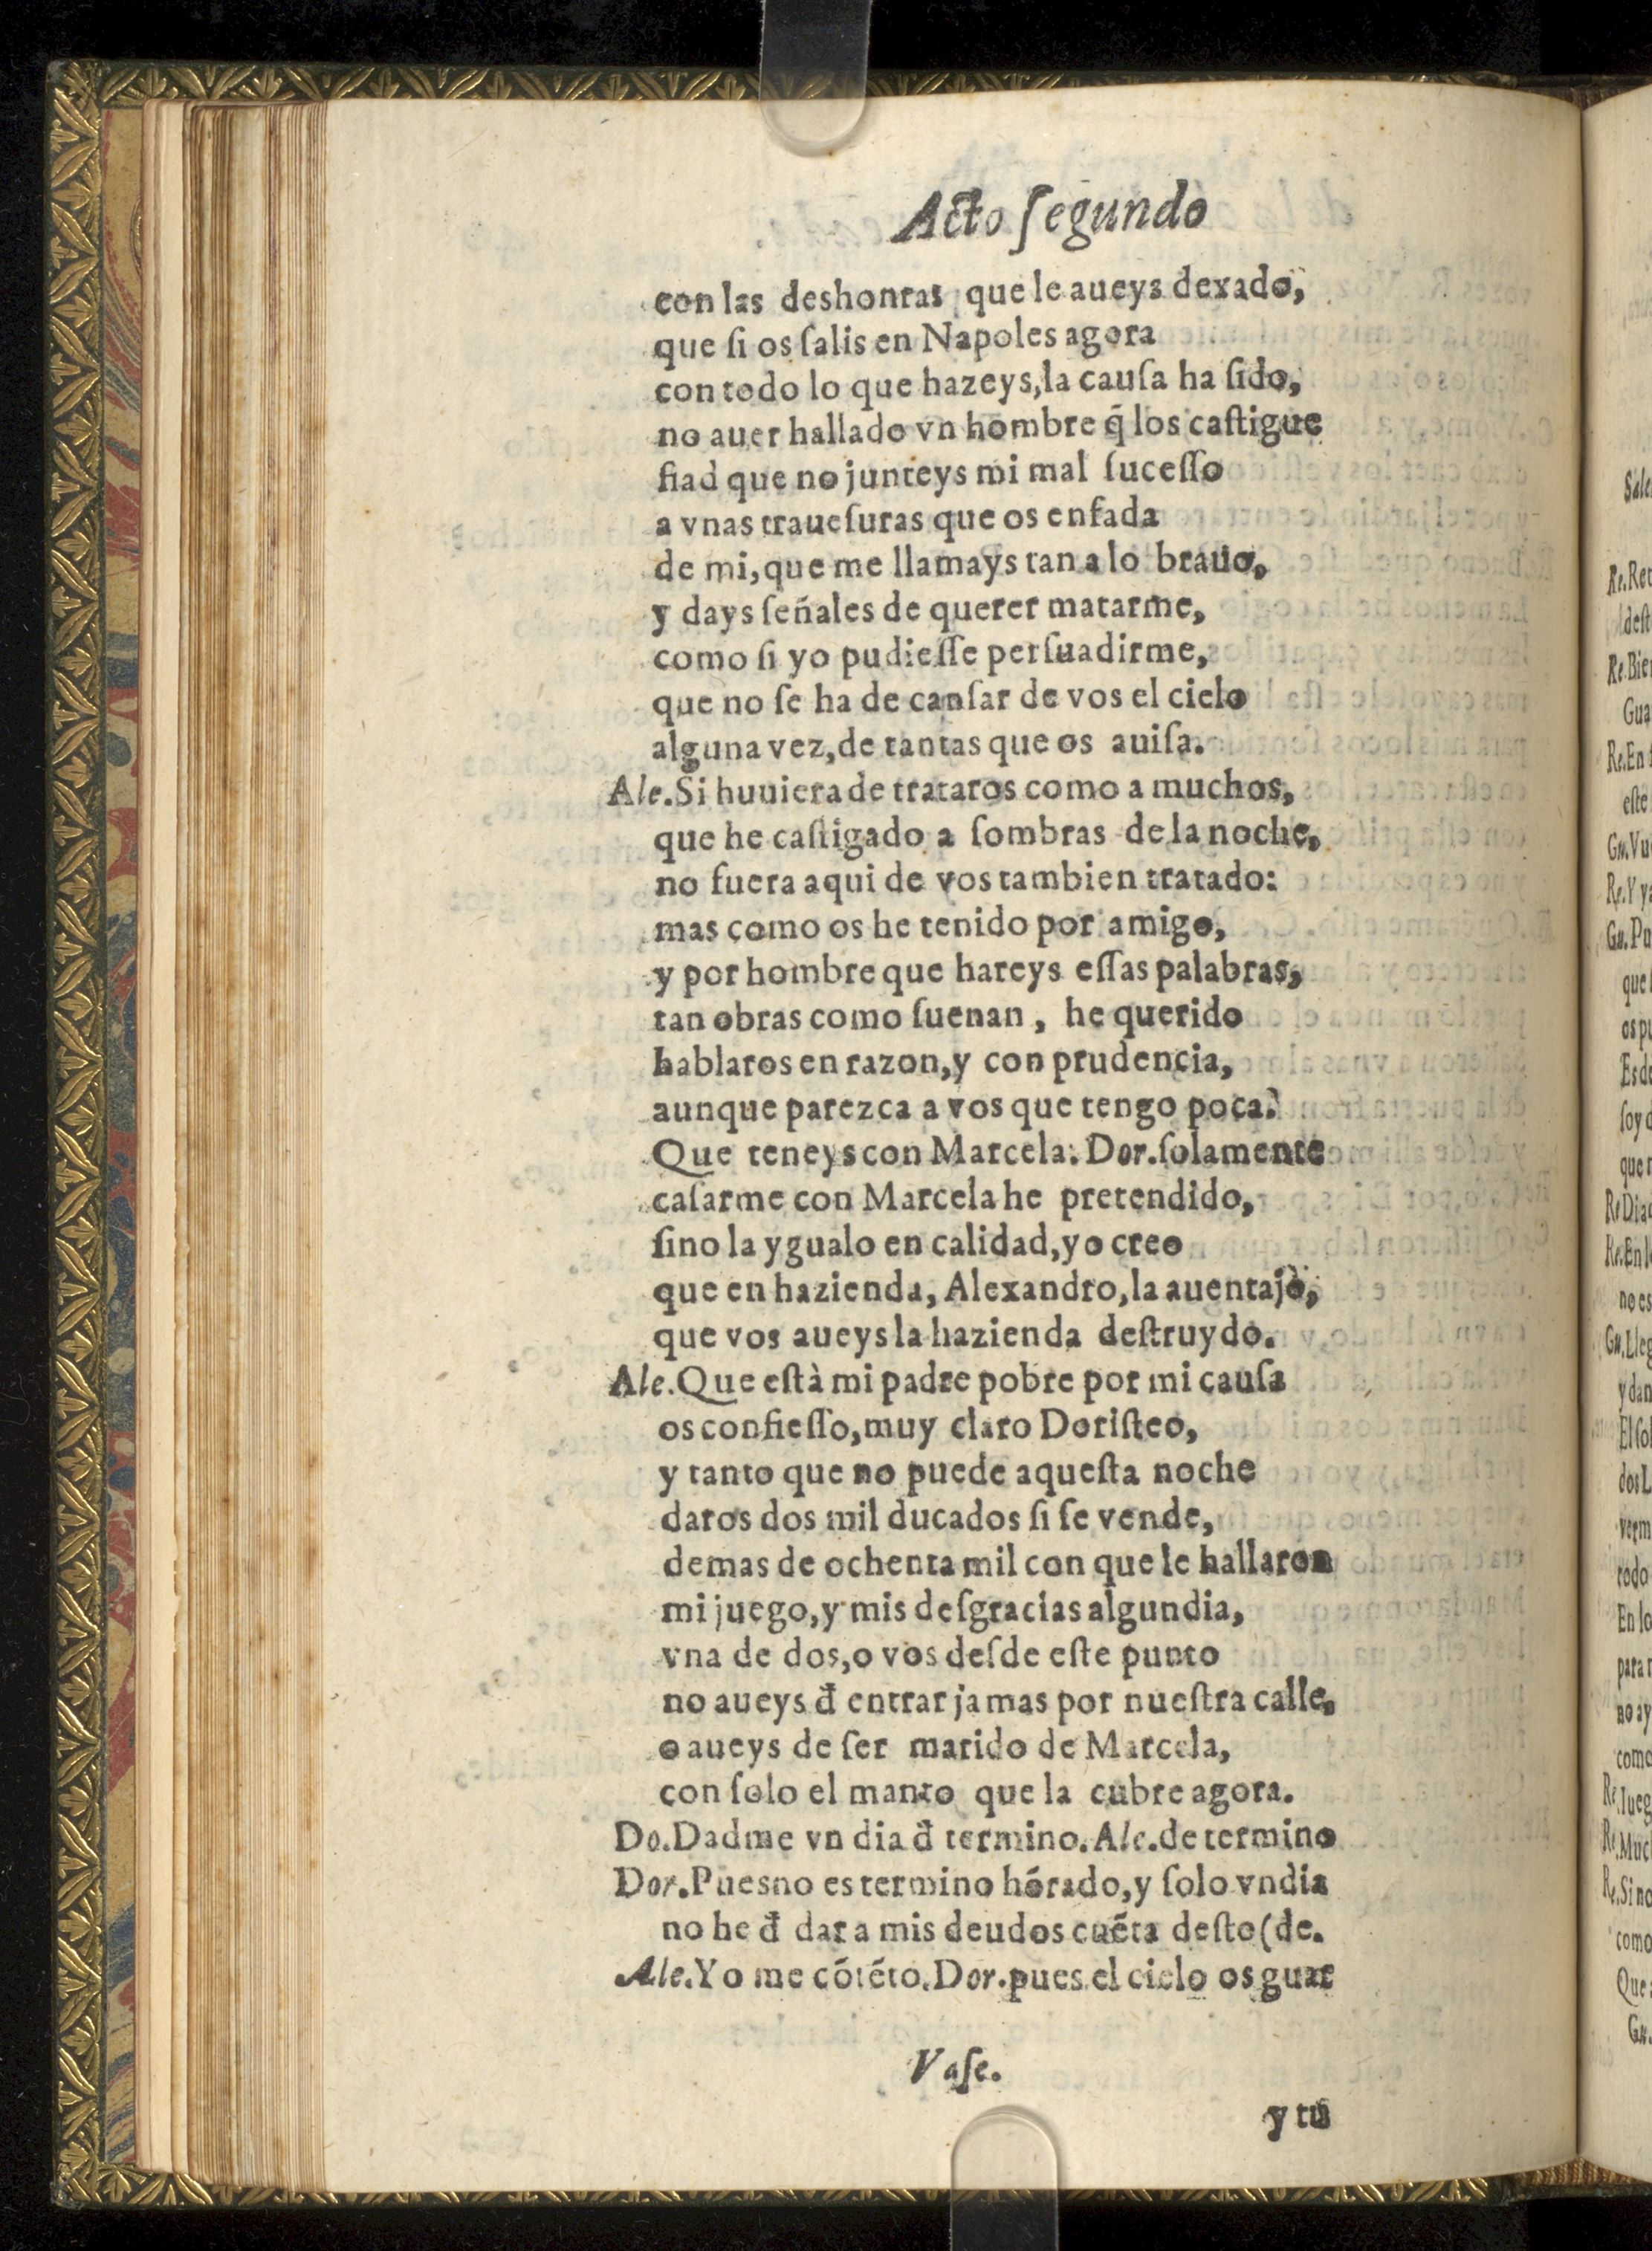 Acto ſegundo
con las deshonras que le aueys dexado,
que ſi os ſalis en Napoles agora
con todo lo que hazeys,la cauſa ha ſido,
no auer hallado vn hombre q̃ los caſtigue
fiad que no junteys mi mal ſuceſſo
a vnas traueſuras que os enfada
de mi,que me llamays tan a lo brauo,
y days ſeñales de querer matarme,
como ſi yo pudieſſe perſuadirme,
que no ſe ha de canſar de vos el cielo
alguna vez,de tantas que os auiſa.
Ale.Si huuiera de trataros como a muchos,
que he caſtigado a ſombras de la noche,
no fuera aqui de vos tambien tratado:
mas como os he tenido por amigo,
y por hombre que hareys eſſas palabras,
tan obras como ſuenan , he querido
hablaros en razon,y con prudencia,
aunque parezca a vos que tengo poca?
Que teneys con Marcela. Dor.ſolamente
caſarme con Marcela he pretendido,
ſino la ygualo en calidad,yo creo
que en hazienda, Alexandro,la auentajo,
que vos aueys la hazienda deſtruydo.
Ale.Que eſtà mi padre pobre por mi cauſa
os confieſſo,muy claro Doriſteo,
y tanto que no puede aqueſta noche
daros dos mil ducados ſi ſe vende,
demas de ochenta mil con que le hallaron
mi juego,y mis deſgracias algun dia,
vna de dos,o vos deſde eſte punto
no aueys đ entrar jamas por nueſtra calle,
o aueys de ſer marido de Marcela,
con ſolo el manto que la cubre agora.
Do.Dadme vn dia đ termino.Ale.de termino
Dor.Pues no es termino hórado,y ſolo vn dia
no he đ dar a mis deudos cuéta deſto(de.
Ale.Yo me cótéto.Dor.pues el cielo os guar
Vaſe.
y tu